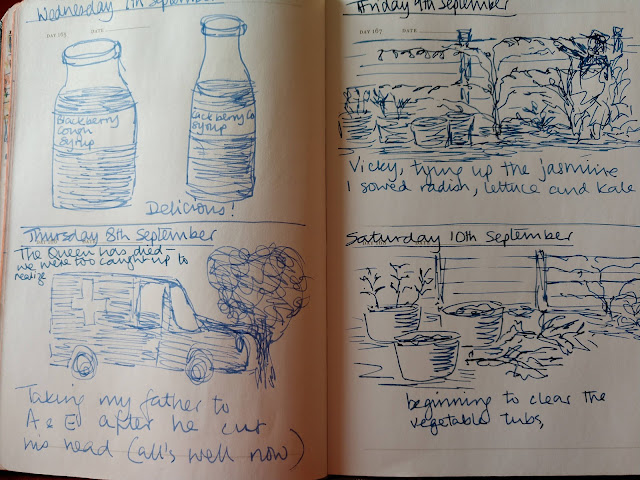 Wednesday 7th September
DAY 165 DATE
Blackberry
Cough
Syrup
Blackberry Co
Syrup
Delicious!
Thursday 8th September
The Queen has died –
we were too caught up to
realize
Taking my father to
A & E after he cut
his head (all's well now)
Friday 9th September
DAY 167 DATE
Vicky, tying up the jasmine
I sowed radish, lettuce and Kale
Saturday 10th September
beginning to clear the
vegetable tubs,